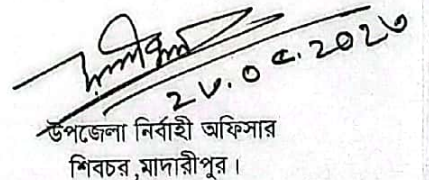 ২৮.০৫.২০২৩
উপজেলা নির্বাহী অফিসার
শিবচর,মাদারীপুর।